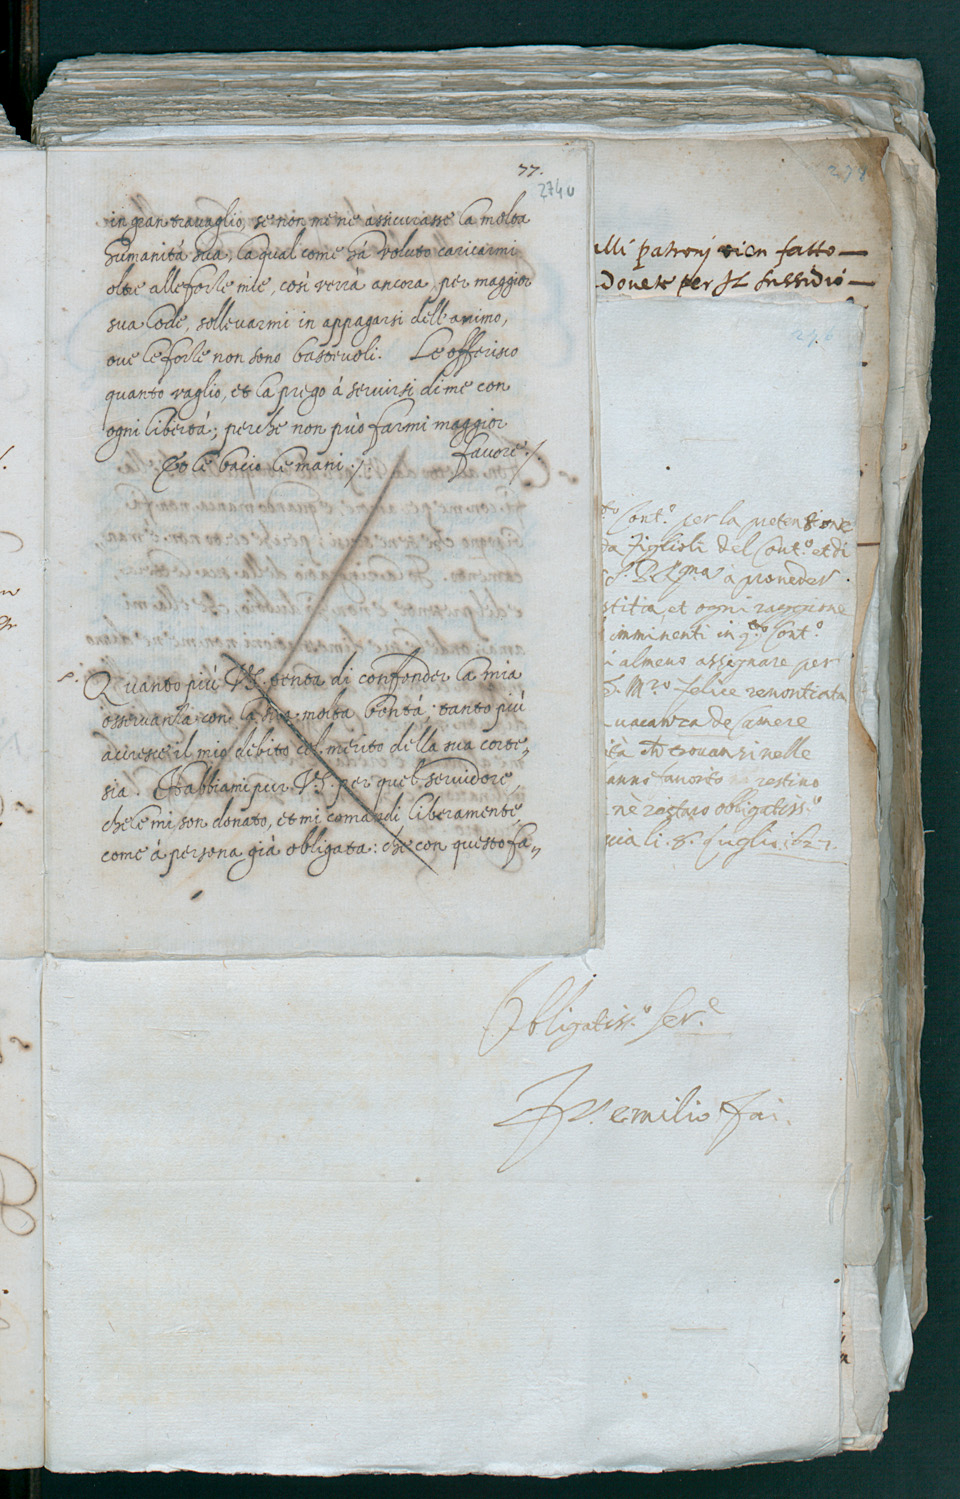 77.
274
in gran travaglio, se non me ne assicurasse la molta
humanità sua; la qual come ha voluto caricarmi
oltre alle forze mie, così verrà ancora, per maggior
sua lode, sollevarmi in appagarsi dell'animo,
ove le forze non sono bastevoli. Le offerisco
quanto vaglio, et la prego à servirsi di me con
ogni libertà; perche non può farmi maggior
favore ./.
Et le bacio le mani ./.
Quanto più V.S. tenta di confonder la mia
osservanza con la sua molta bontà; tanto più
acresce il mio debito col merito della sua corte,,
sia. Habbiami pur V.S. per quel servidore,
che le mi son donato, et mi comandi liberamente,
come à persona già obligata: che con questo fa,,
278
alli patronj vien fatto
Dovete per il sussidio
276
Cont.º per la pretensione
figlioli del Cont.º et di
à proveder
stitia, et ogni raggione
imminenti in q.to Cont.º
almeno assignare per
Mro felice renontiata
vacanza de Camere
trovansi nelle
anno favorito restino
nè restaro obligatiss.º
li. 8. luglio. 1627.
Obligatiss.º Ser.e
emilio fai.